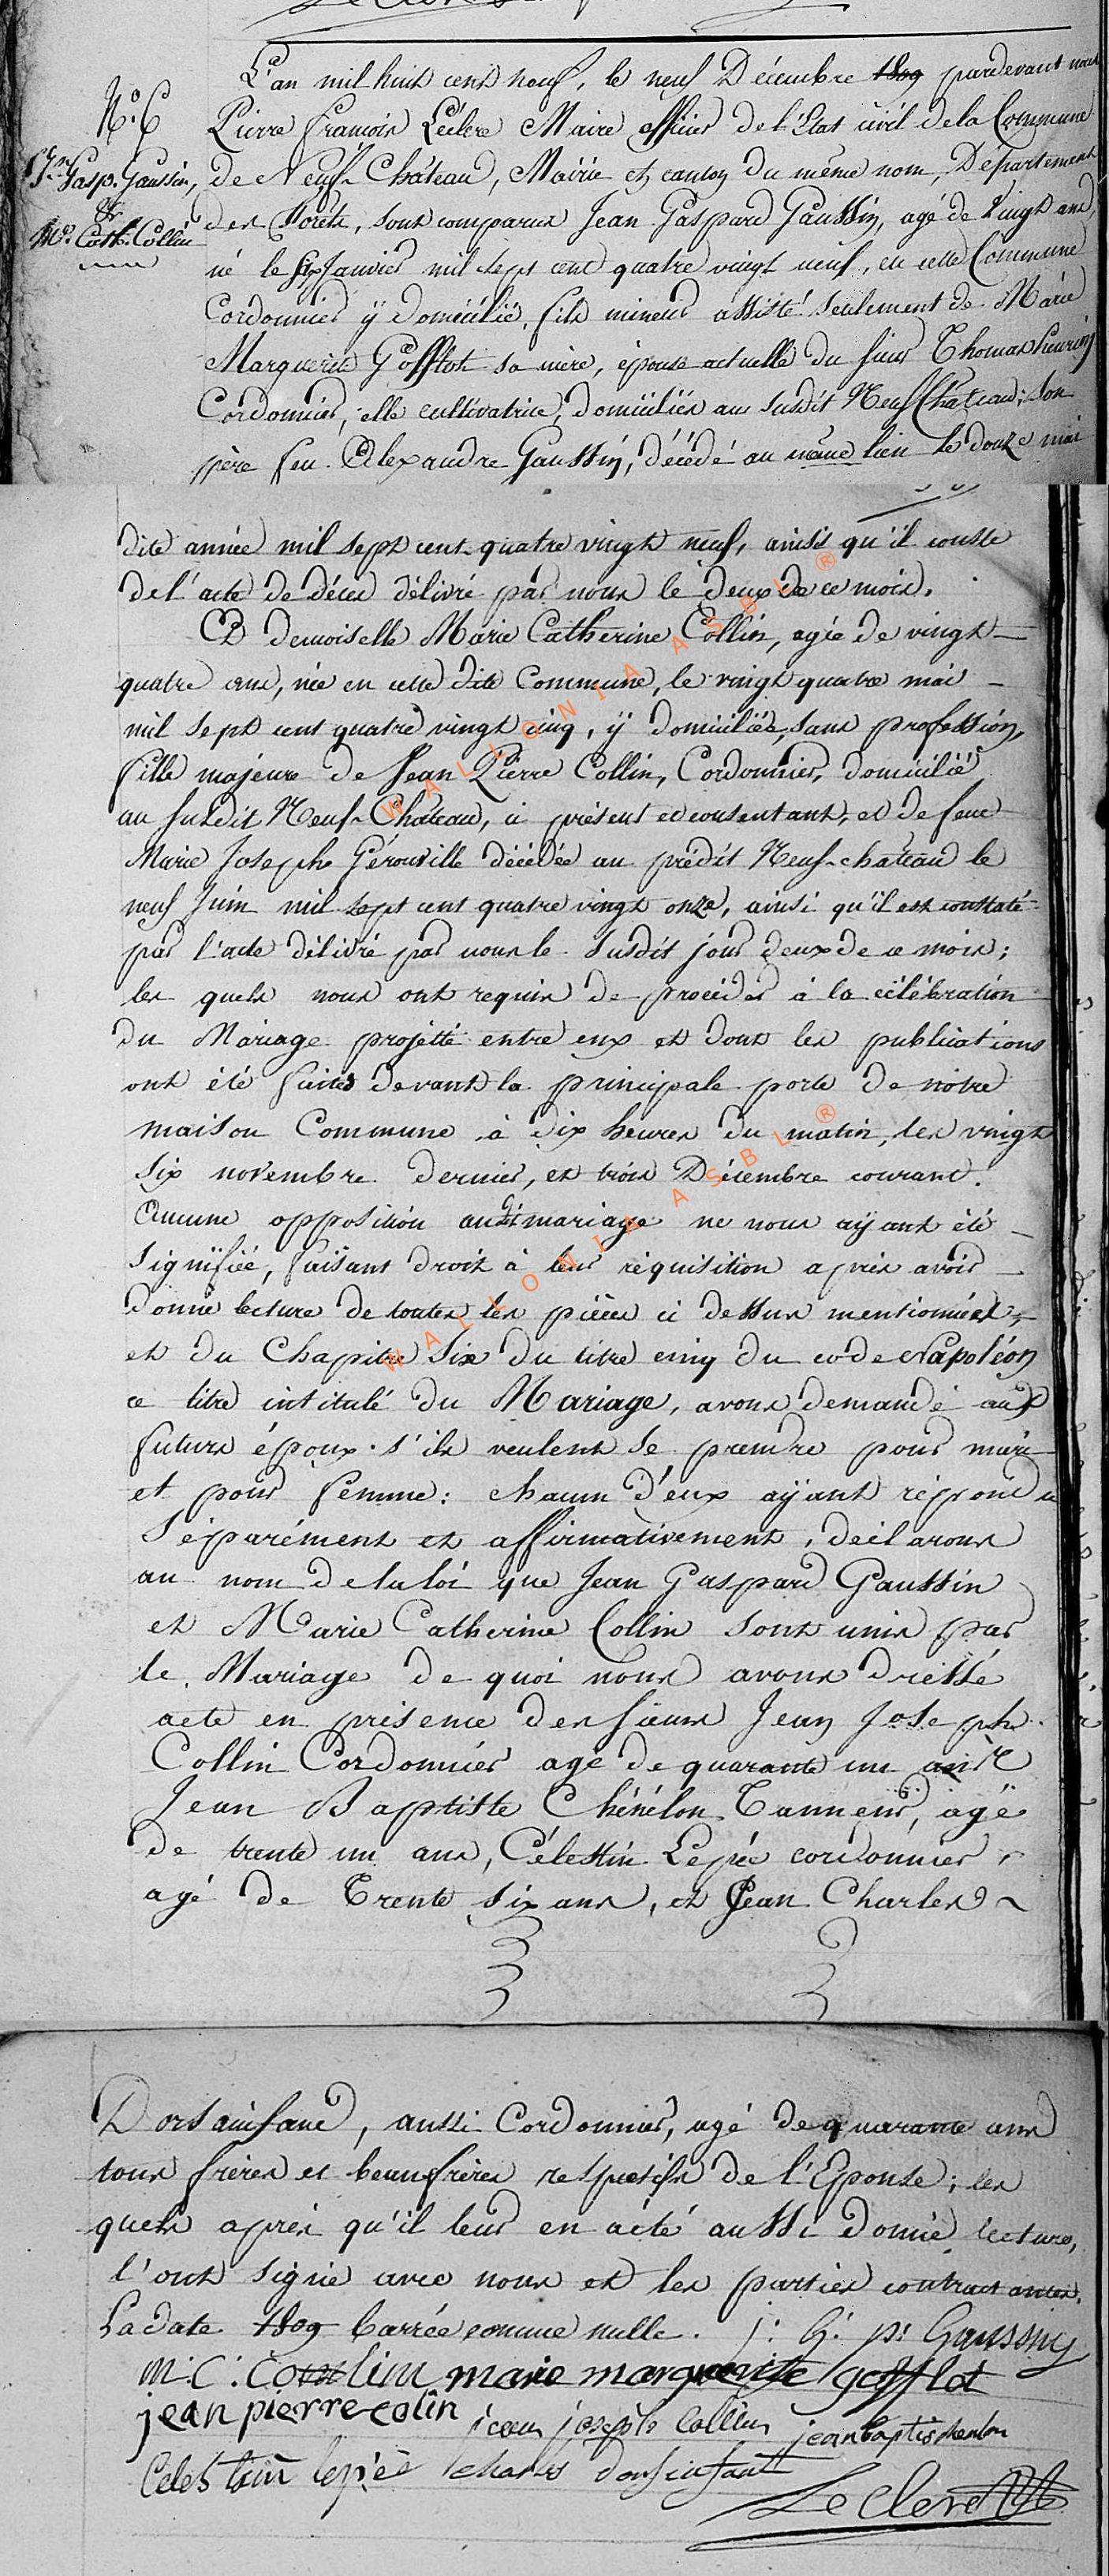 L'an mil huit cent neuf, le neuf Décembre 1809 pardevant nous
N.° 6
Pierre François Leclere Maire officier de l'Etat civil de la Commune
Jn. Gasp. Gaussin,
de Neuf-Château, Mairie et canton du même nom, Département
&
des Forêts, sont comparus Jean Gaspard Gaussin, agé de vingt ans,
Me. Cath. Collin
né le six Janvier mil sept cent quatre vingt neuf, en cette Commune
Cordonnier ÿ domicilié, fils mineur assisté seulement de Marie
Marguerite Gofflot sa mère, épouse actuelle du sieur Thomas
Cordonnier, elle cultivatrice, domiciliés au susdit Neufchâteau; son
père feu Alexandre Gaussin, décédé au même lieu le douze mai
dite année mil sept cent quatre vingt neuf, ainsi qu'il conste
de l'acte de décès délivré par nous le deux de ce mois.
Et demoiselle Marie Catherine Collin, agée de vingt
quatre ans, née en cette dite Commune, le vingt quatre mai
mil sept cent quatre vingt cinq, ÿ domiciliée, sans profession,
fille majeure de Jean Pierre Collin, Cordonnier, domicilié
au susdit Neuf-Château, à présent et consentant, et de feue
Marie Josephe Gérouville décédée au prédit Neuf-château le
neuf Juin mil sept cent quatre vingt onze, ainsi qu'il est constaté
par l'acte délivré par nous le susdit jour deux de ce mois;
les quels nous ont requis de procéder à la célébration
du Mariage projetté entre eux et dont les publications
ont été faites devant la principale porte de notre
maison Commune à dix heures du matin, les vingt
six novembre dernier, et trois Décembre courant.
Aucune opposition audit mariage ne nous aÿant été
signifiée, faisant droit à leur réquisition après avoir
donné lecture de toutes les pièces ci dessus mentionnées,
et du Chapitre six du titre cinq du code Napoléon
ce titre intitulé du Mariage, avons demandé aux
futurs époux s'ils veulent se prendre pour mari
et pour femme: chacun d'eux aÿant répondu
séparément et affirmativement, déclarons
au nom de la loi que Jean Gaspard Gaussin
et Marie Catherine Collin sont unis par
le Mariage de quoi nous avons dressé
acte en présence des sieurs Jean Joseph
Collin Cordonnier agé de quarante un ans
Jean Baptiste Chénélon Tanneur, agé
de trente un ans, Célestin Lepée cordonnier,
agé de Trente six ans, et Jean Charles
Dorsainfand, aussi Cordonnier, agé de quarante ans
tous frères et beaufrères respectifs de l'Epouse; les
quels après qu'il leur en a été aussi donné lecture,
l'ont signé avec nous et les parties contractantes.
La date 1809 barrée comme nulle. J: G. pr Gaussin
M: C: Collin marie marguerite gofflot
jean pierre colin jean joseph Collin jean baptis
Celestin lepée charles dorsinfant
Leclere
WALLONIA ASBL ®
WALLONIA ASBL ®